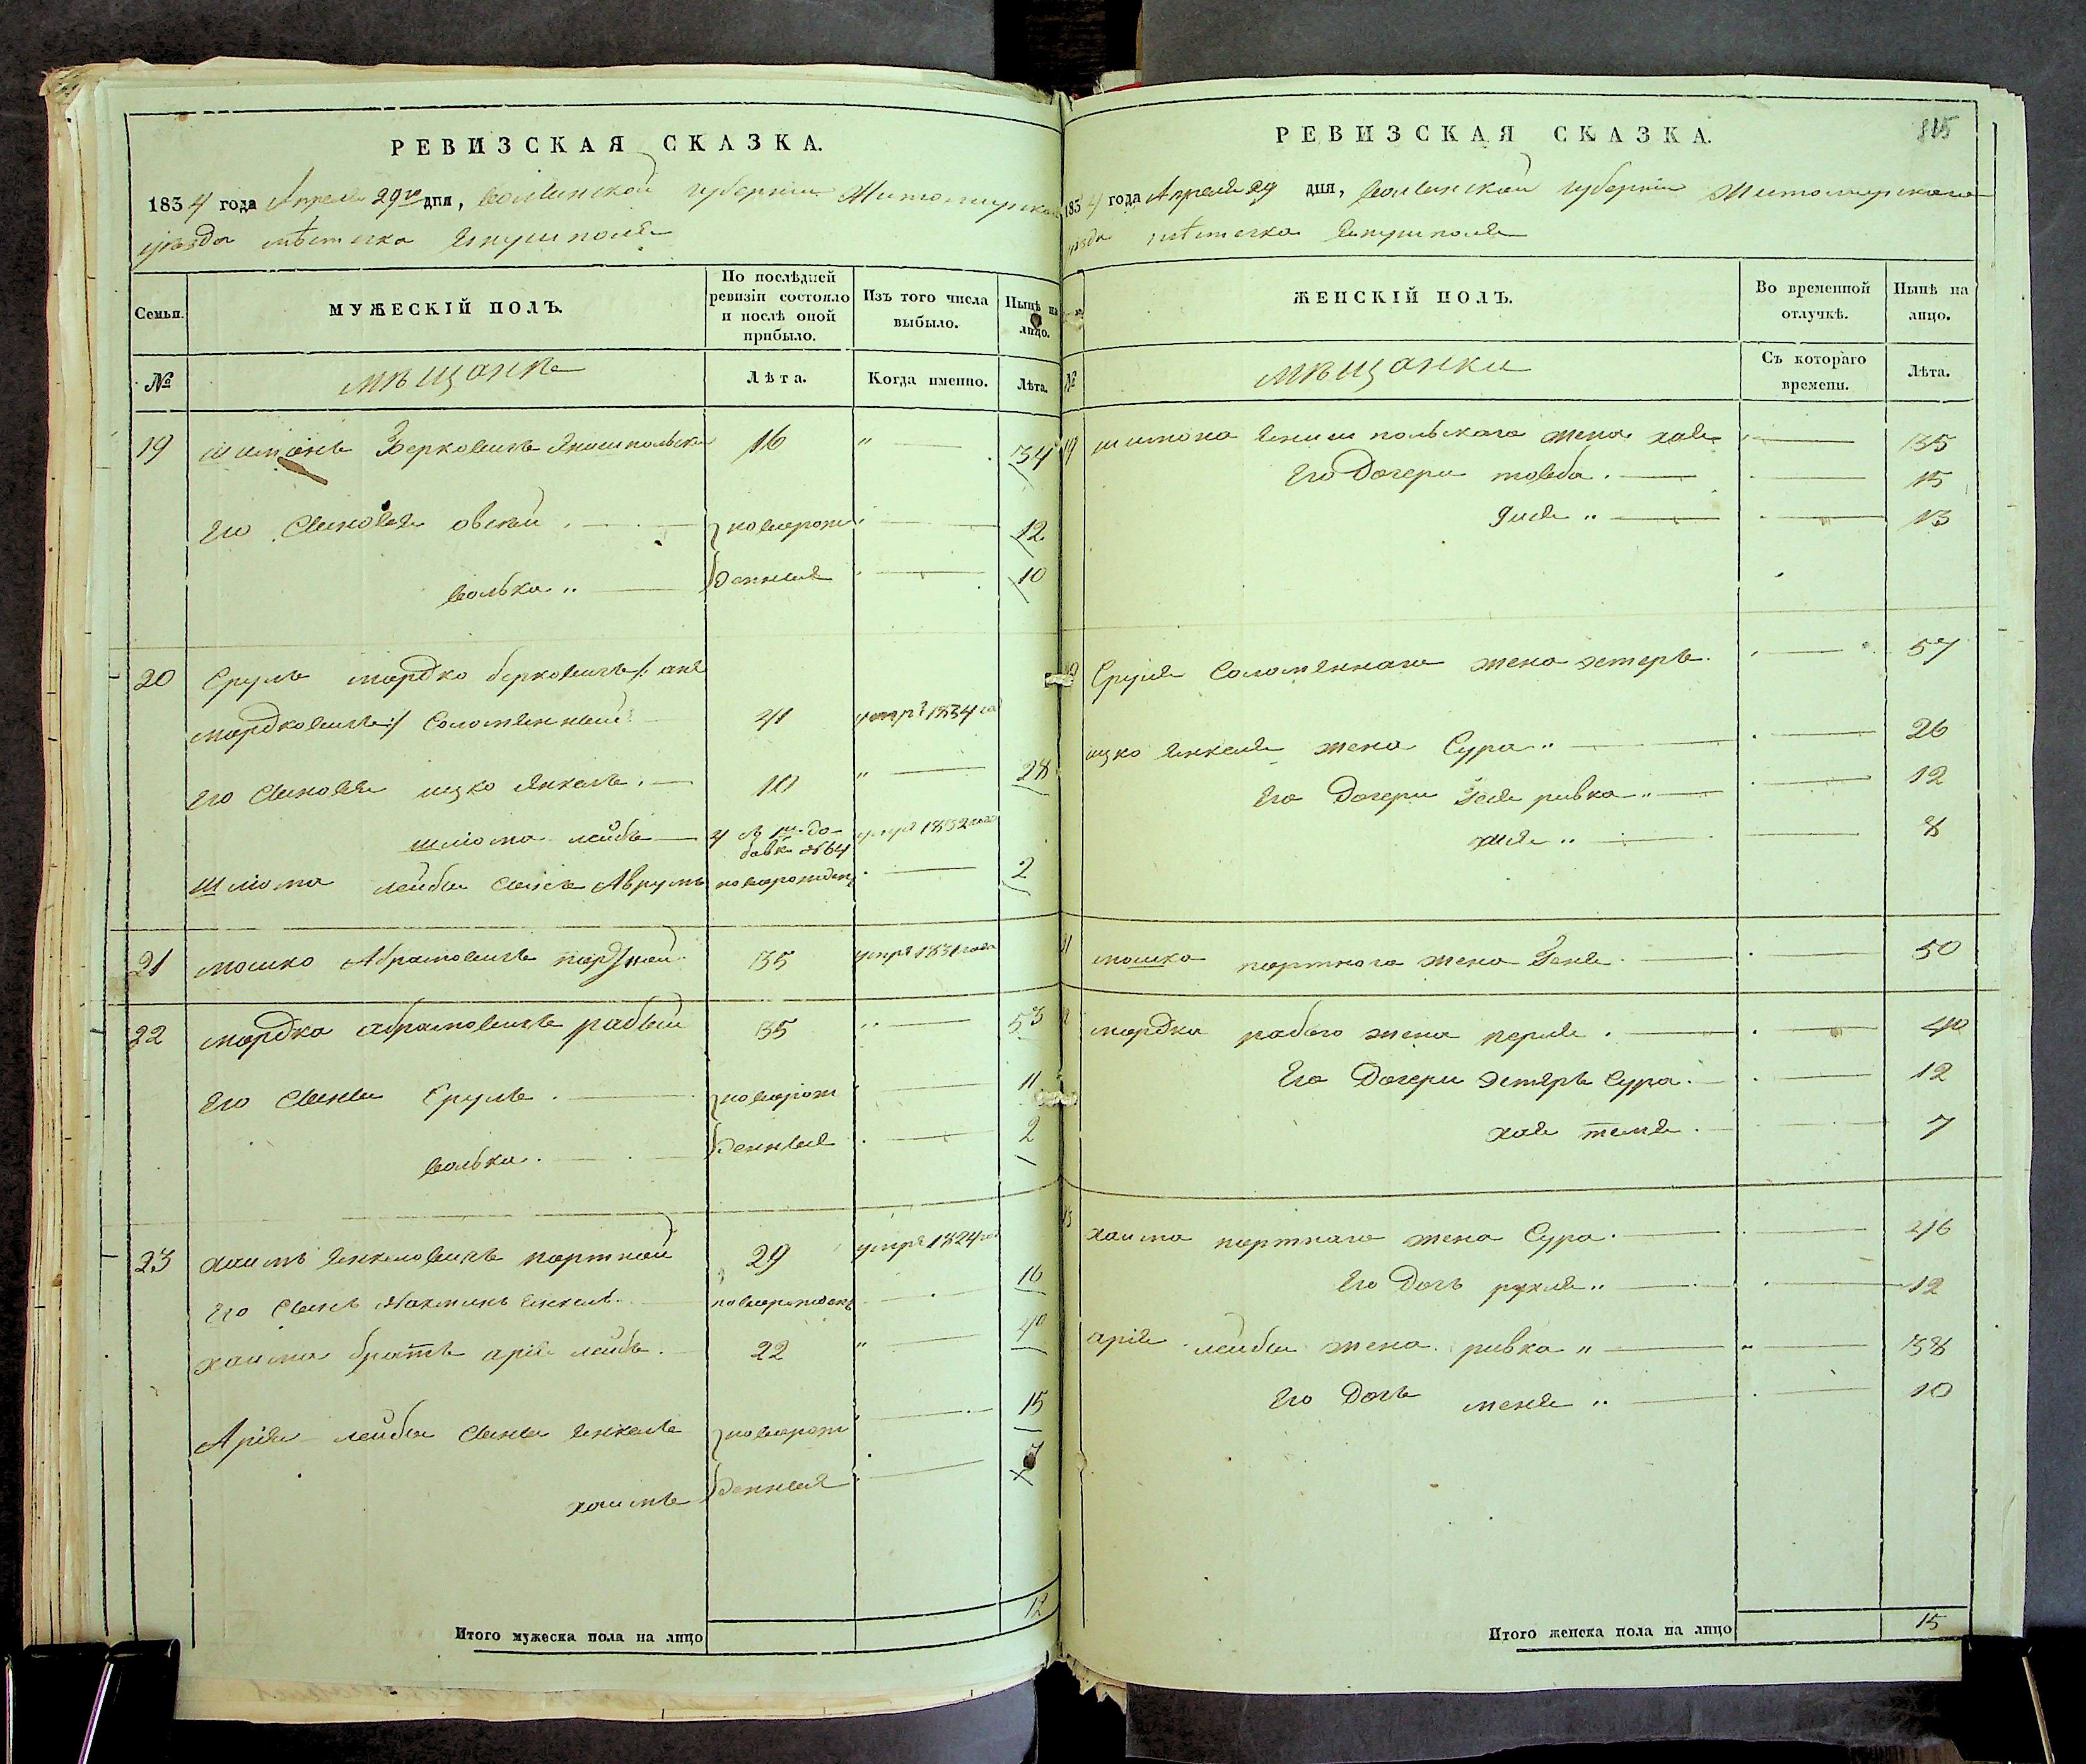 РЕВИЗСКАЯ СКАЗКА.
1834 года Апреля 29го дня, Волынской губернии Житомирскаго
уѣзда мѣстечка Янушполя
Семьи.
МУЖЕСКІЙ ПОЛЪ.
По послѣдней ревизіи состояло и послѣ оной прибыло.
Изъ того числа выбыло.
Нынѣ на лицо.
№
мѣщане
Лѣта.
Когда именно.
Лѣта.
19 Шимонъ Берковичъ Янушпольски 16 " 34
Его Сыновья овсей новорож 12
Волька " денные 10
20 Сруль мордко берковичъ /: ане
мордковичъ :/ Соломянный 41 умре 1834 го
Его Сыновья ицко Янкель. 10 " 28
шліома лейбъ 4 до-
бавк. №64 умре 1832 года
Шліома лейбы Сынъ Аврумъ новорожден 2
21 мошко Абрамовичъ портной 35 умре 1831 года
22 мордко абрамовичъ рабый 35 " 53
Его Сыны Сруль новорож 11
волька. денные 2
23 хаимъ Янкелевичъ портной 29 умре 1824 го
Его Сынъ Нахманъ Янкель новорожденъ 16
хаима братъ арія лейбъ. 22 " 40
Арія лейбы Сыны Янкель новорож 15
хаимъ денные
Итого мужеска пола на лицо 12
РЕВИЗСКАЯ СКАЗКА.
815
1834 года Апреля 29 дня, Волынской губерніи Житомирскаго
уѣзда мѣстечка Янушполя
ЖЕНСКІЙ ПОЛЪ.
Во временной отлучкѣ.
Нынѣ на лицо.
№
мѣщанки
Съ котораго времени.
Лѣта.
19 шимона Янушпольскаго жена хая 35
Его Дочери товба. 15
13
Сруля Соломяннаго жена эстеръ. 57
ицко Янкеля жена Сура " 26
Его Дочери ривка " 12
8
21 мошка портного жена Геня. 50
мордка рабого жена перля. 40
Его Дочери Эстеръ Сура. 12
хая 7
хаима портнаго жена Сура. 46
Его Дочь рухля " 12
арія лейбы жена ривка " " 38
Его Дочь меня " 10
Итого женска пола на лицо 15